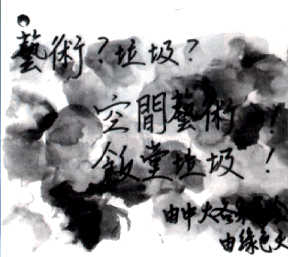 藝術？垃圾？
空間藝術！
飯堂垃圾！
由中大各
由綠色大